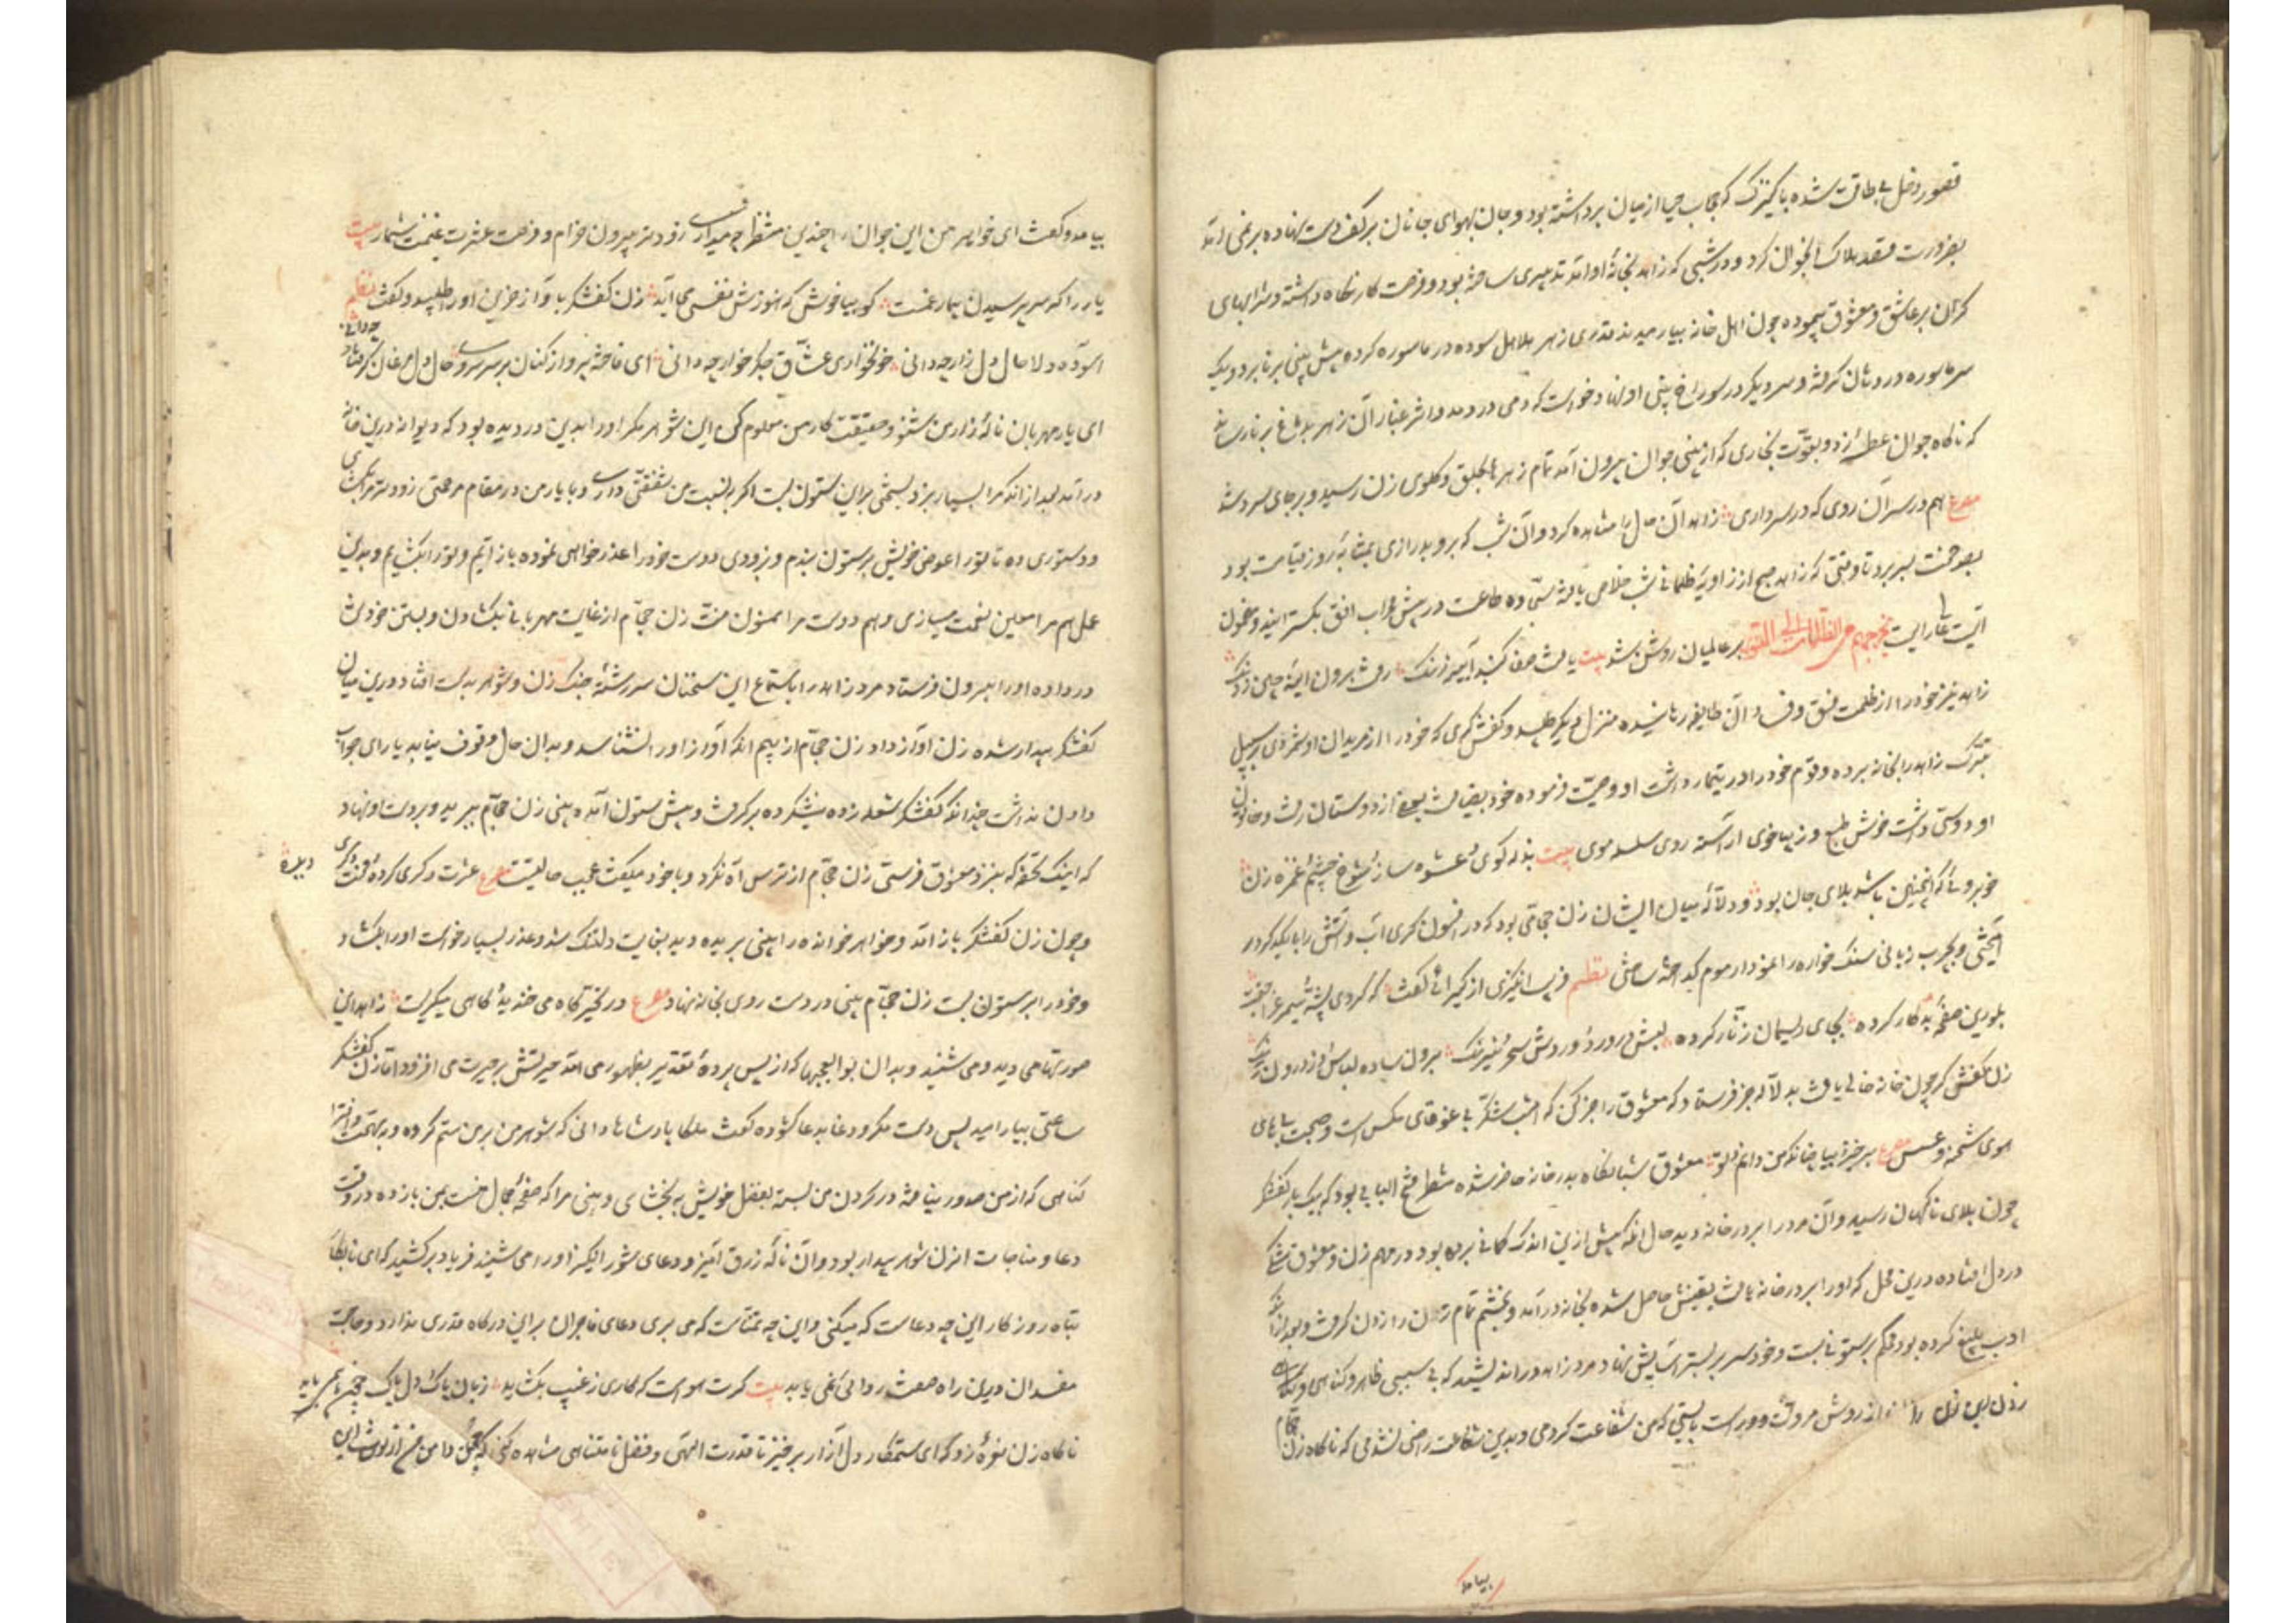 قصور دخل بی طاقت شده با کنیزک که حجاب حیا از میان برداشته بود و جان بهوای جانان بر کف دست نهاده بر نمی آمد
بضرورت قصد هلاک آنجوان کرد و در شبی که زاهد بخانهٔ او آمد تدبیری ساخته بود و فرصت کار نگاه داشته و شرابهای
گران بر عاشق و معشوق پیموده چون اهل خانه بیارمیدند قدری زهر هلاهل سوده در ماسوره کرده پیش بینی برنا برد و یک
سر ماسوره در دهان گرفته و سر دیگر در سوراخ بینی او نهاد و خواست که دمی در دمد و اثر غبار آن زهر بدماغ برنا رساند
که ناگاه جوان عطسهٔ زد و بقوّت بخاری که از بینی جوان بیرون آمد تمام زهر بحلق و گلوی زن رسید و بر جای سرد شد
مصرع هم در سر آن روی که در سر داری زاهد آن حال را مشاهده کرد و آن شب که برو بدرازی بمثابهٔ روز قیامت بود
بصد محنت بسر برد تا وقتی که زاهد صبح از زاویهٔ ظلمانی شب خلاص یافته سجّادهٔ طاعت در پیش محراب افق بگسترانید و مضمون
آیت یخرجهم من الظلمات الی النور بر عالمیان روشن شد بیت یافت صفا گنبد آیینه رنگ رفت برون آینهٔ چین ز زنگ
زاهد نیز خود را از ظلمت فسق و فساد آن طایفه رهانیده منزل دیگر طلبید و کفشگری که خود را از مریدان او شمردی بر سبیل
تبرّک زاهد را بخانه برد و قوم خود را در تیمار داشت او وصیت فرموده خود بضیافت بعضی از دوستان رفت و خاتون
او دوستی داشت خوش طبع و زیبا خوی آراسته روی سلسله موی بیت بذله گوی و عشوه ساز و شوخ چشم و غمزه زن
خوبرویی که اینچنین باشد بلای جان بود و دلّالهٔ میان ایشان زن حجّامی بود که در افسون گری آب و آتش را با یکدیگر
آمیختی و بچرب زبانی سنگ خاره را مانند موم گداخته ساختی نظم فریب انگیزی از گیرائی گفت که کردی پشه را سیمرغ را جفت
بلورین صفحهٔ بدکار کرده بجای ریسمان زنّار کرده لبش در ورد و وردش سحر و نیرنگ برون ساده لباس و از درون رنگ
زن کفشگر چون خانه خالی یافت بدلّاله خبر فرستاد که معشوق را خبر کن که امشب شکر بی غوغای مگس است و صحبت بی های
هوی شحنه و عسس مصرع برخیز و بیا چنانکه من دانم و تو معشوق شبانگاه بدر خانه حاضر شده منتظر فتح الباب بود که بیکبار کفشگر
چون بلای ناگهان رسید و آن مرد را بر در خانه دید حال آنکه پیش ازین اندک گمانی برده بود و در مهم زن و معشوق شکی
در دل افتاده درین محل که او را بر در خانه یافت یقینش حاصل شده بخانه در آمد و بخشم تمام زن را زدن گرفت و بعد از آنکه
ادب بلیغ کرده بود محکم بر ستونی بست و خود سر بر بستر آسایش نهاد مرد زاهد در اندیشه که بی سببی ظاهر و گناهی
زدن این زن را از روش مروّت دور است بایستی که من شفاعت کردمی و بدین شفاعت راضی نشدمی که ناگاه زن حجّام
بیامد
بیامد و گفت ای خواهر من این جوان را چندین منتظر چه میداری زودتر بیرون خرام و فرصت عشرت غنیمت شمار بیت
یار را گر سر پرسیدن بیمار غمست گو بیا خوش که هنوزش نفسی می آید زن کفشگر با آواز حزین او را طلبید و گفت نظم
آسوده دلا حال دل زار چه دانی خونخواری عشّاق جگر خوار چه دانی ای فاخته پرواز کنان بر سر سروی حال دل مرغان گرفتار چه دانی
ای یار مهربان نالهٔ زار من شنو و حقیقت کار من معلوم کن این شوهر مگر او را بدین در دیده بود که دیوانه وار درین خانه
در آمد بعد از آنکه مرا بسیار بزد بسختی برین ستون بست اگر نسبت من شفقتی داری و با یار من در مقام مرحمتی زودتر مرا بگشای
و دستوری ده تا تو را عوض خویش برستون بندم و بزودی دوست خود را عذرخواهی نموده باز آیم و تو را بگشایم و بدین
عمل هم مرا معین نعمت میسازی و هم دوست مرا ممنون منّت زن حجّام از غایت مهربانی بگشادن و بستن خود تن
در داده او را بیرون فرستاد مرد زاهد را باستماع این سخنان سر رشتهٔ جنگ زن و شوهر بدست افتاد و درین میان
کفشگر بیدار شده زن آواز داد زن حجّام از بیم آنکه آواز او را نشناسد و بدان حال وقوف نیابد یارای جواب
دادن نداشت چندانکه کفشگر شعله زده نیشگرده بر گرفت و پیش ستون آمده بینی زن حجّام ببرید و بر دست او نهاد
که اینک تحفه که بنزد معشوق فرستی زن حجّام از ترس آه نکرد و با خود میگفت عجب حالتیست مصرع عشرت دگری کرده و محنت دگری دیده
و چون زن کفشگر باز آمد و خواهر خوانده را بینی بریده دید بغایت دلتنگ شد و عذر بسیار خواست او را بگشاد
و خود را بر ستون بست زن حجّام بینی در دست روی بخانه نهاد مصرع در تحیر گاه می خندید و گاهی میگریست زاهد این
صورتها می دید و می شنید و بدان بوالعجبیها که از پس پردهٔ تقدیر بظهور می آمد حیرتش بر حیرت می افزود امّا زن کفشگر
ساعتی بیارامید پس دست مکر و دغا بدعا گشوده گفت ملکا پادشاها دانی که شوهر من بر من ستم کرده و بهتمت و افترا
گناهی که از من صدور نیافته در گردن من بسته بفضل خویش ببخشای و بینی مرا که صفحهٔ جمال منست بمن باز ده در وقت
دعا و مناجات آن زن شوهر بیدار بود و آن نالهٔ زرق آمیز و دعای شور انگیز او را می شنید فریاد برکشید که ای نابکار
تباه روزگار این چه دعاست که میکنی و این چه تمنّاست که می بری دعای فاجران بر این درگاه قدری ندارد و حاجت
مفسدان درین راه صفت روائی نمی یابد بیت گرت هواست که کاری ز غیب بگشاید زبان پاک و دل پاک
ناگاه زن نعره زد که ای ستمکار دل آزار برخیز تا قدرت الهی و فضل نامتناهی مشاهده کنی که چون دامن من از لوث این